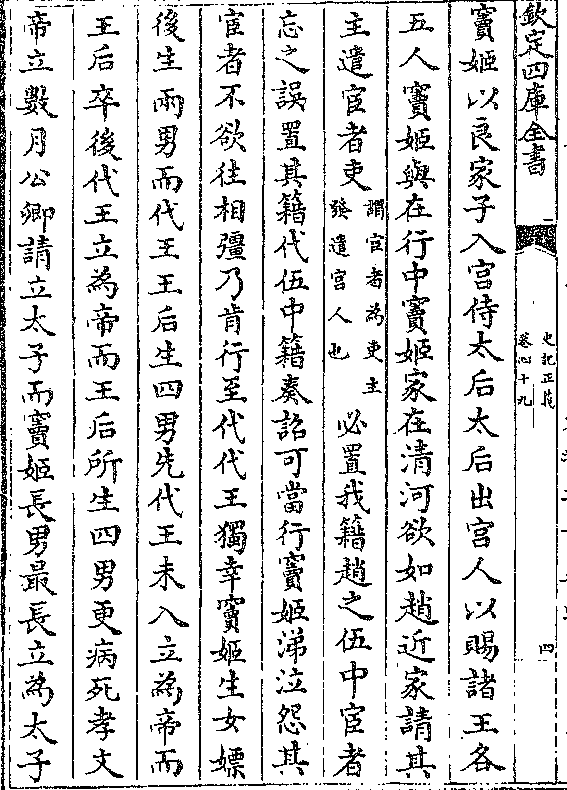 欽定四庫全書
史記正義
卷四十九
四
竇姬以良家子入宮侍太后太后出宮人以賜諸王各
五人竇姬與在行中竇姬家在清河欲如趙近家請其
主遣宦者吏謂宦者為吏主發遣宮人也必置我籍趙之伍中宦者
忘之誤置其籍代伍中籍奏詔可當行竇姬涕泣怨其
宦者不欲往相彊乃肯行至代代王獨幸竇姬生女嫖
後生兩男而代王王后生四男先代王未入立為帝而
王后卒後代王立為帝而王后所生四男更病死孝文
帝立數月公卿請立太子而竇姬長男最長立為太子